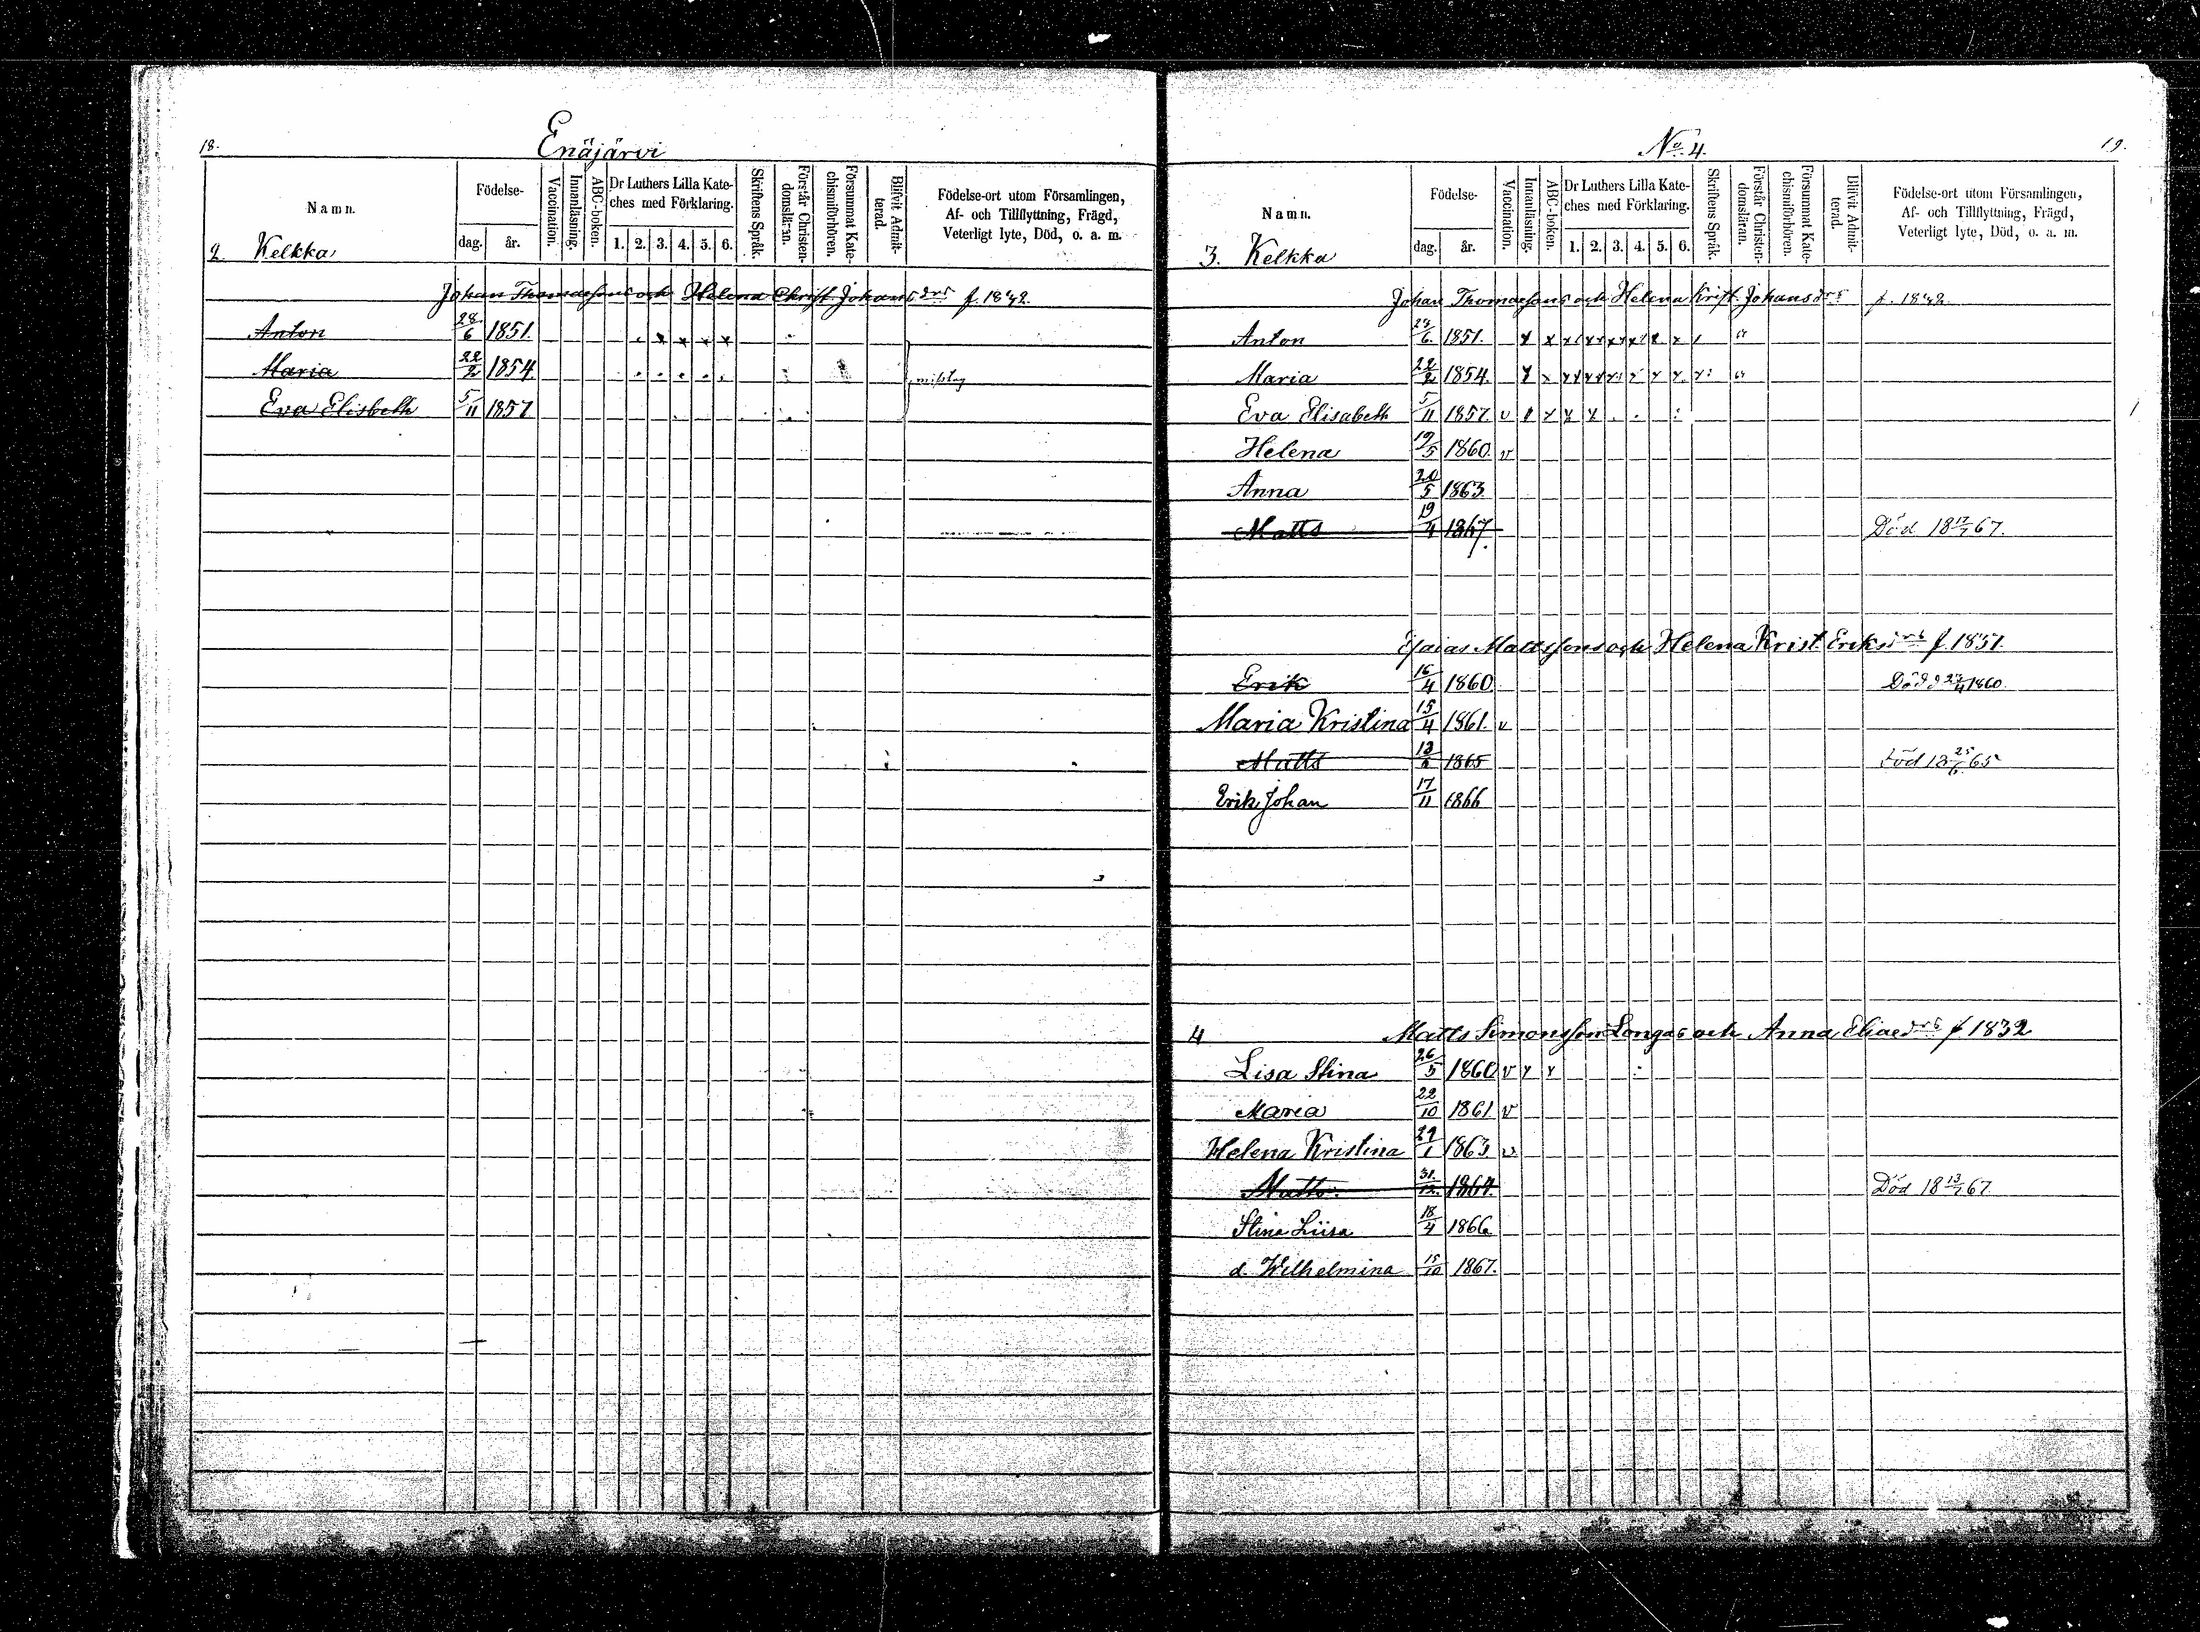 18.
Enäjärvi
Namn.
Födelse-
dag. år.
Vaccination.
Innanläsning.
ABC-boken.
Dr Luthers Lilla Kate-
ches med Förklaring.
1. 2. 3. 4. 5. 6.
Skriftens Språk.
Förstår Christen-
domsläran.
Försummat Kate-
chismiförhören.
Blifvit Admit-
terad.
Födelse-ort utom Församlingen,
Af- och Tillflyttning, Frägd,
Veterligt lyte, Död, o. a. m.
2. Kelkka
Johan Thomasson och Helena Christ. Johans drs f. 1842.
Anton 28/6 1851.
Maria 22/2 1854
Eva Elisbeth 5/11 1857
No 4.
19.
Namn.
Födelse-
dag. år.
Vaccination.
Innanläsning.
ABC-boken.
Dr Luthers Lilla Kate-
ches med Förklaring.
1. 2. 3. 4. 5. 6.
Skriftens Språk.
Förstår Christen-
domsläran.
Försummat Kate-
chismiförhören.
Blifvit Admit-
terad.
Födelse-ort utom Församlingen,
Af- och Tillflyttning, Frägd,
Veterligt lyte, Död, o. a. m.
3. Kelkka
Johan Thomasson och Helena Krist. Johans drs f. 1842
Anton 28/6 1851.
Maria 22/2 1854.
Eva Elisabeth 5/11 1857. v
Helena 19/5 1860 v
Anna 20/5 1863
Matts 19/4 1867. Död 18 17/7 67.
Esaias Mattsson och Helena Krist. Eriks drs f. 1851.
Erik 16/4 1860 Död d 27/4 1860.
Maria Kristina 15/4 1861. v
Matts 1865 Död 18 25/6 65
Erik Johan 17/11 1866
4 Matts Simonsson Longas och Anna Eliaedrs f 1832
Lisa Stina 26/5 1860 v
Maria 22/10 1861 v
Helena Kristina 1863 v
Matts. 31/12 1864. Död 18 13/7 67.
Stina Liisa 18/4 1866
d. Wilhelmina 15/10 1867.